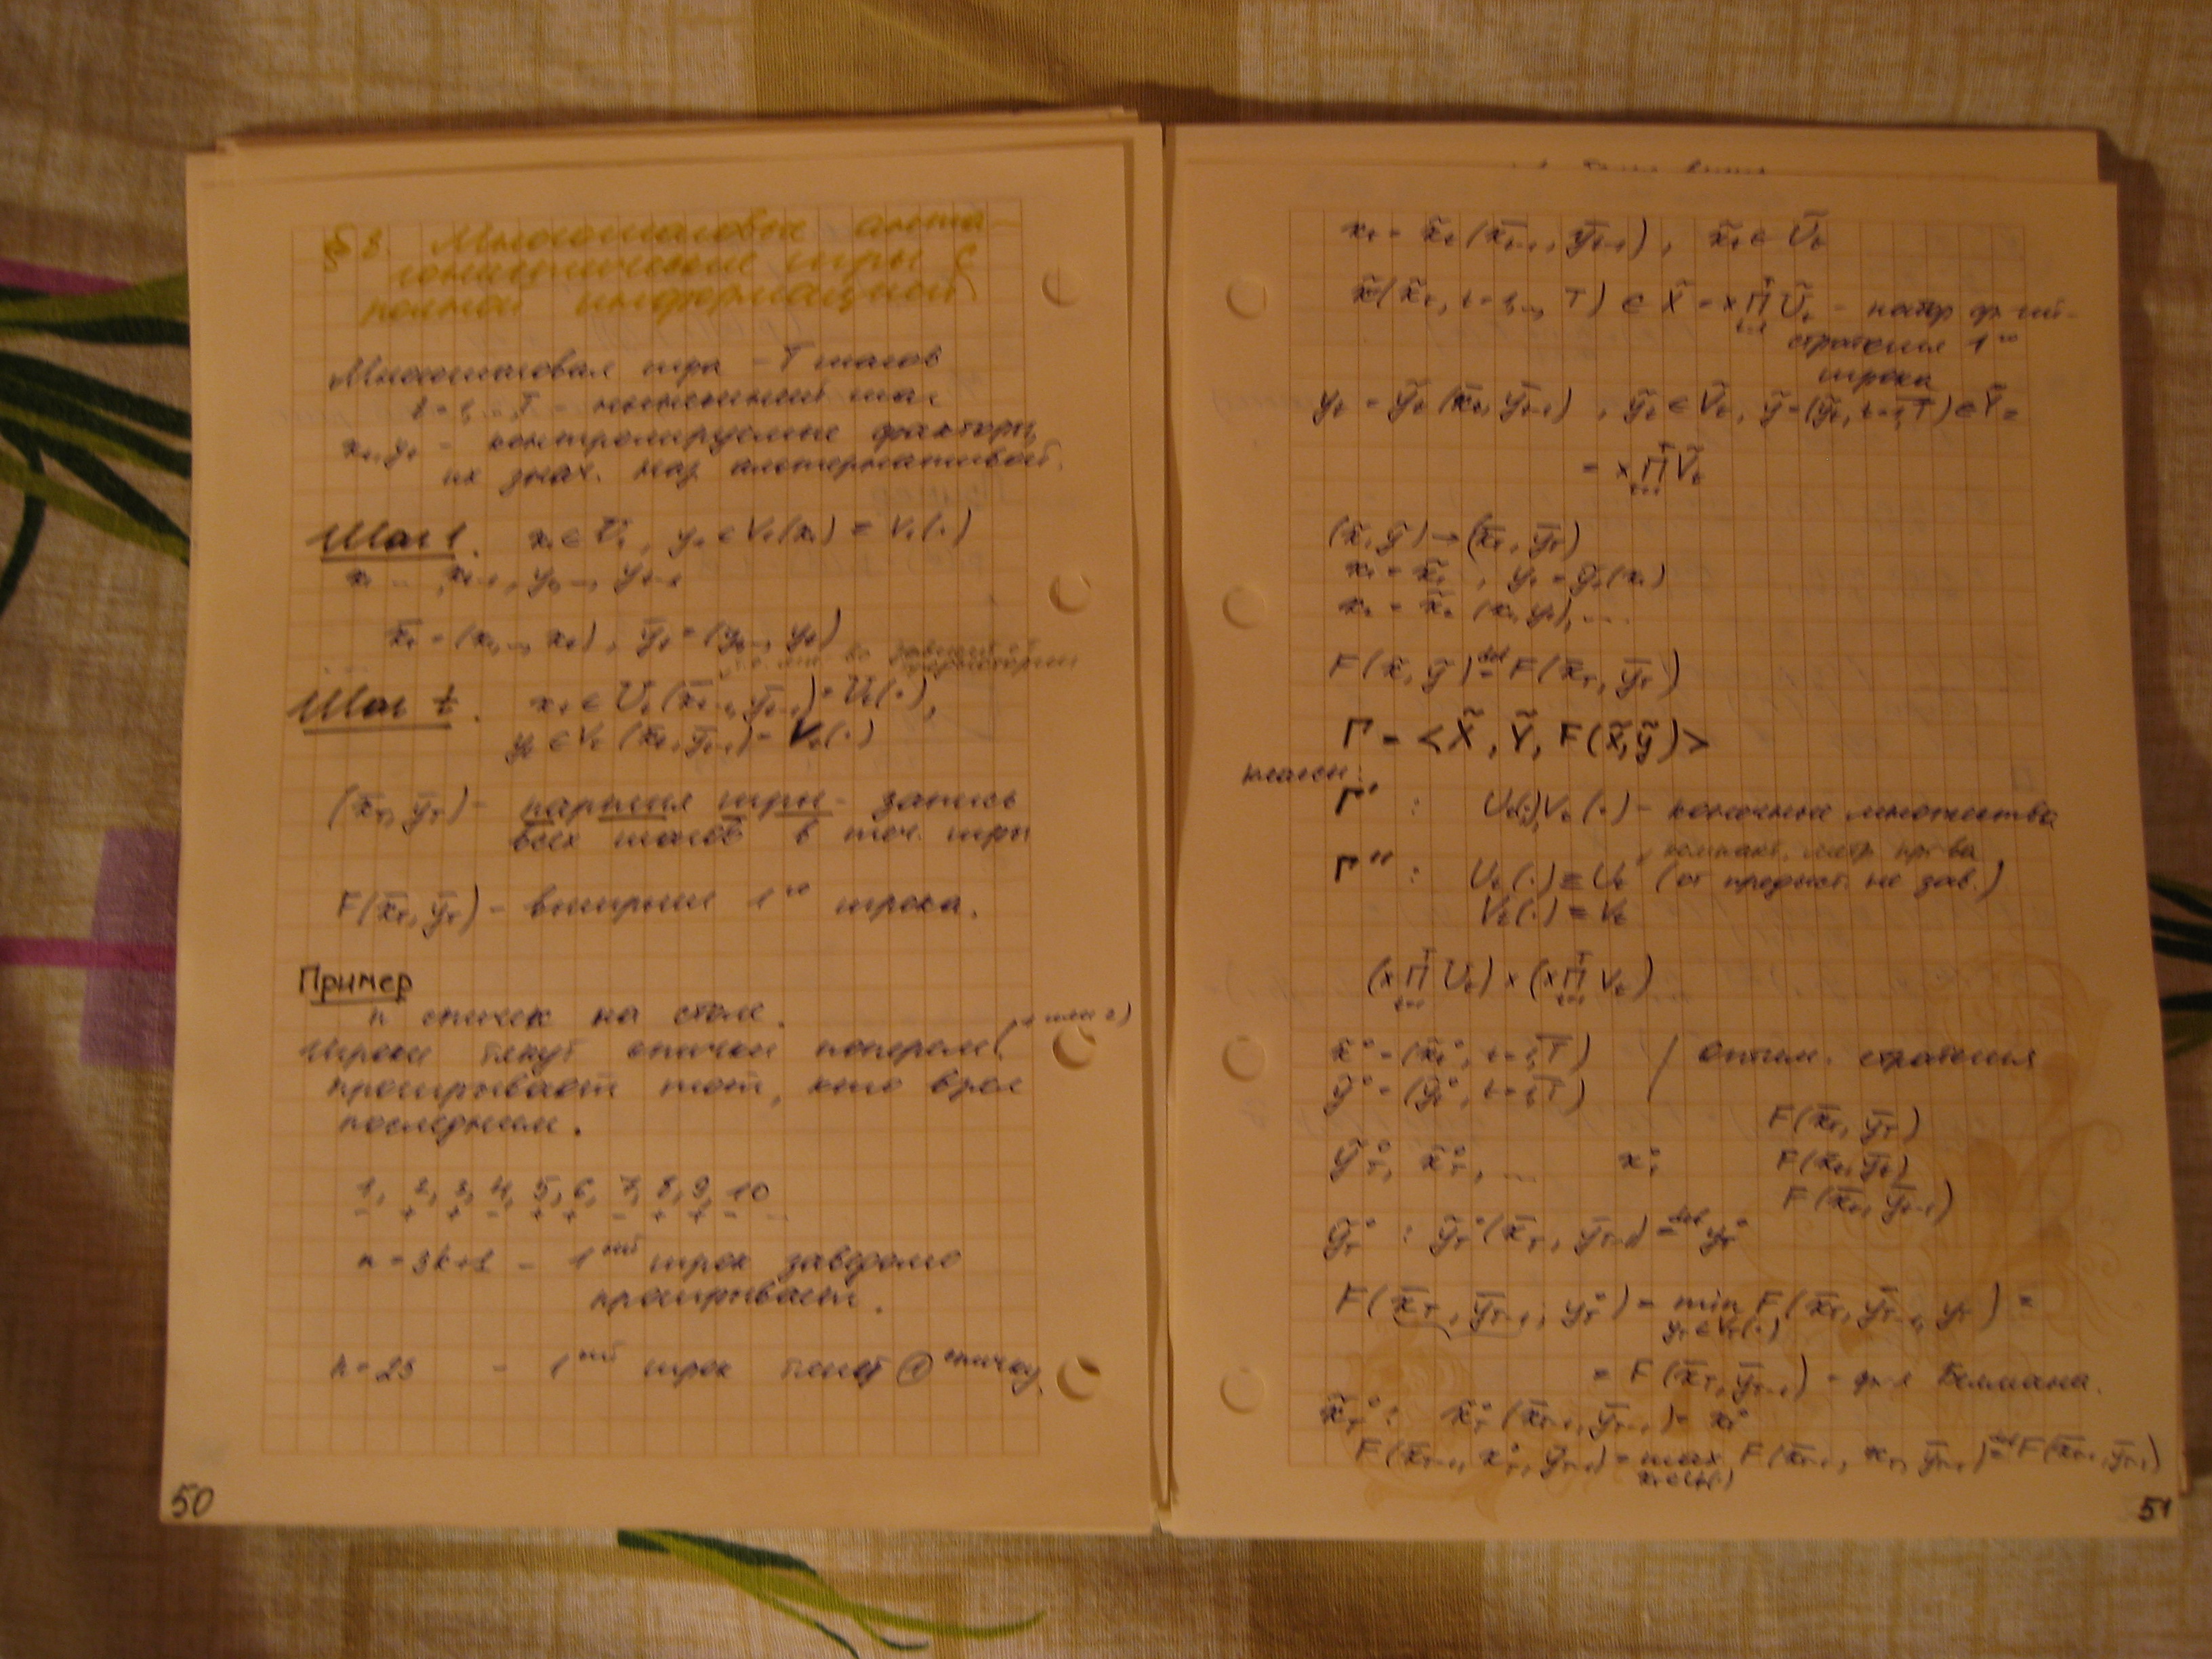 § 8. Многошаговые анта-
гонистические игры с
полной информацией.
Многошаговая игра – T шагов
t = 1,...,T –  шаг
x_t, y_t – контролируемые факторы,
их знач. наз. альтернативой.
Шаг 1. x₁ ∈ U₁, y₁ ∈ V₁(x₁) ≡ V₁(·)
x₁ ... x_{t-1}, y₁,..., y_{t-1}
x̄_t = (x₁,..., x_t), ȳ_t = (y₁,..., y_t)
зависит от
Шаг t. x_t ∈ U_t(x̄_{t-1}, ȳ_{t-1}) ≡ U_t(·),
y_t ∈ V_t(x̄_t, ȳ_{t-1}) ≡ V_t(·)
(x̄_T, ȳ_T) – партия игры – запись
всех шагов в теч. игры
F(x̄_T, ȳ_T) – выигрыш 1го игрока.
Пример
n спичек на столе.
Игроки тянут спички поочереди (1 или 2)
проигрывает тот, кто взял
последним.
1, 2, 3, 4, 5, 6, 7, 8, 9, 10
– + + – + + – + + –
n = 3k+1 – 1ый игрок заведомо
проигрывает.
n = 23 – 1ый игрок тянет ① спичку.
50
x_t = x̃_t(x̄_{t-1}, ȳ_{t-1}), x̃_t ∈ Ũ_t
x̃ (x̃_t, t = 1,..., T) ∈ X̃ = × ∏_{t=1}^T Ũ_t –
стратегия 1го
игрока
y_t = ỹ_t(x̄_t, ȳ_{t-1}), ỹ_t ∈ Ṽ_t, ỹ = (ỹ_t, t = 1,T) ∈ Ỹ =
= × ∏_{t=1}^T Ṽ_t
(x̃, ỹ) → (x̄_T, ȳ_T)
x₁ = x̃₁, y₁ = ỹ₁(x₁)
x₂ = x̃₂(x₁, y₁), ...
F(x̃, ỹ) =^{def} F(x̄_T, ȳ_T)
Γ = <X̃, Ỹ, F(x̃, ỹ)>
классы:
Γ' : U_t(·), V_t(·) – конечные множества
компакт. метр. пр-ва
Γ'' : U_t(·) ≡ U_t (от предыст. не зав.)
V_t(·) ≡ V_t
(× ∏_{t=1}^T U_t) × (× ∏_{t=1}^T V_t)
x̃⁰ = (x̃_t⁰, t = 1,T) / оптим. стратегия
ỹ⁰ = (ỹ_t⁰, t = 1,T)
F(x̄_T, ȳ_T)
ỹ_T⁰, x̃_T⁰, ... x₁⁰ F(x̄_t, ȳ_t)
F(x̄_t, ȳ_{t-1})
ỹ_T⁰ : ỹ_T⁰(x̄_T, ȳ_{T-1}) =^{def} y_T⁰
F(x̄_T, ȳ_{T-1}, y_T⁰) = min_{y_T ∈ V_T(·)} F(x̄_T, ȳ_{T-1}, y_T) =
= F(x̄_T, ȳ_{T-1}) – ф-я Беллмана.
x̃_T⁰ : x̃_T⁰(x̄_{T-1}, ȳ_{T-1}) = x_T⁰
F(x̄_{T-1}, x_T⁰, ȳ_{T-1}) = max_{x_T ∈ U_T(·)} F(x̄_{T-1}, x_T, ȳ_{T-1}) =^{def} F(x̄_{T-1}, ȳ_{T-1})
51